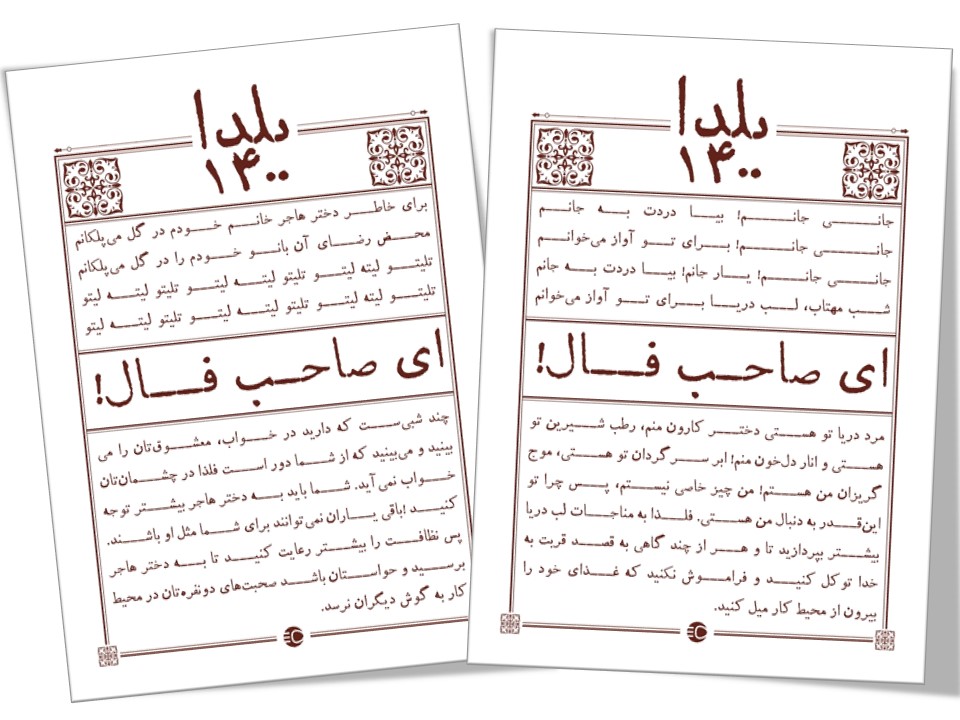 یلدا
۱۴۰۰
جانی جانم! بیا دردت به جانم
جانی جانم! برای تو آواز می‌خوانم
جانی جانم! یار جانم! بیا دردت به جانم
شب مهتاب، لب دریا برای تو آواز می‌خوانم
ای صاحب فال!
مرد دریا تو هستی دختر کارون منم، رطب شیرین تو
هستی و انار دل‌خون منم! ابر سرگردان تو هستی، موج
گریزان من هستم! من چیز خاصی نیستم، پس چرا تو
این‌قدر به دنبال من هستی. فلذا به مناجات لب دریا
بیشتر بپردازید تا و هر از چند گاهی به قصد قربت به
خدا توکل کنید و فراموش نکنید که غذای خود را
بیرون از محیط کار میل کنید.
یلدا
۱۴۰۰
برای خاطر دختر هاجر خانم خودم در گل می‌پلکانم
محض رضای آن بانو خودم را در گل می‌پلکانم
تلیتو لیته لیتو تلیتو لیته لیتو تلیتو لیته لیتو
تلیتو لیته لیتو تلیتو لیته لیتو تلیتو لیته لیتو
ای صاحب فال!
چند شبی‌ست که دارید در خواب، معشوق‌تان را می
بینید و می‌بینید که از شما دور است فلذا در چشمان‌تان
خواب نمی‌آید. شما باید به دختر هاجر بیشتر توجه
کنید اباقی یاران نمی‌توانند برای شما مثل او باشند.
پس نظافت را بیشتر رعایت کنید تا به دختر هاجر
برسید و حواستان باشد صحبت‌های دونفره‌تان در محیط
کار به گوش دیگران نرسد.